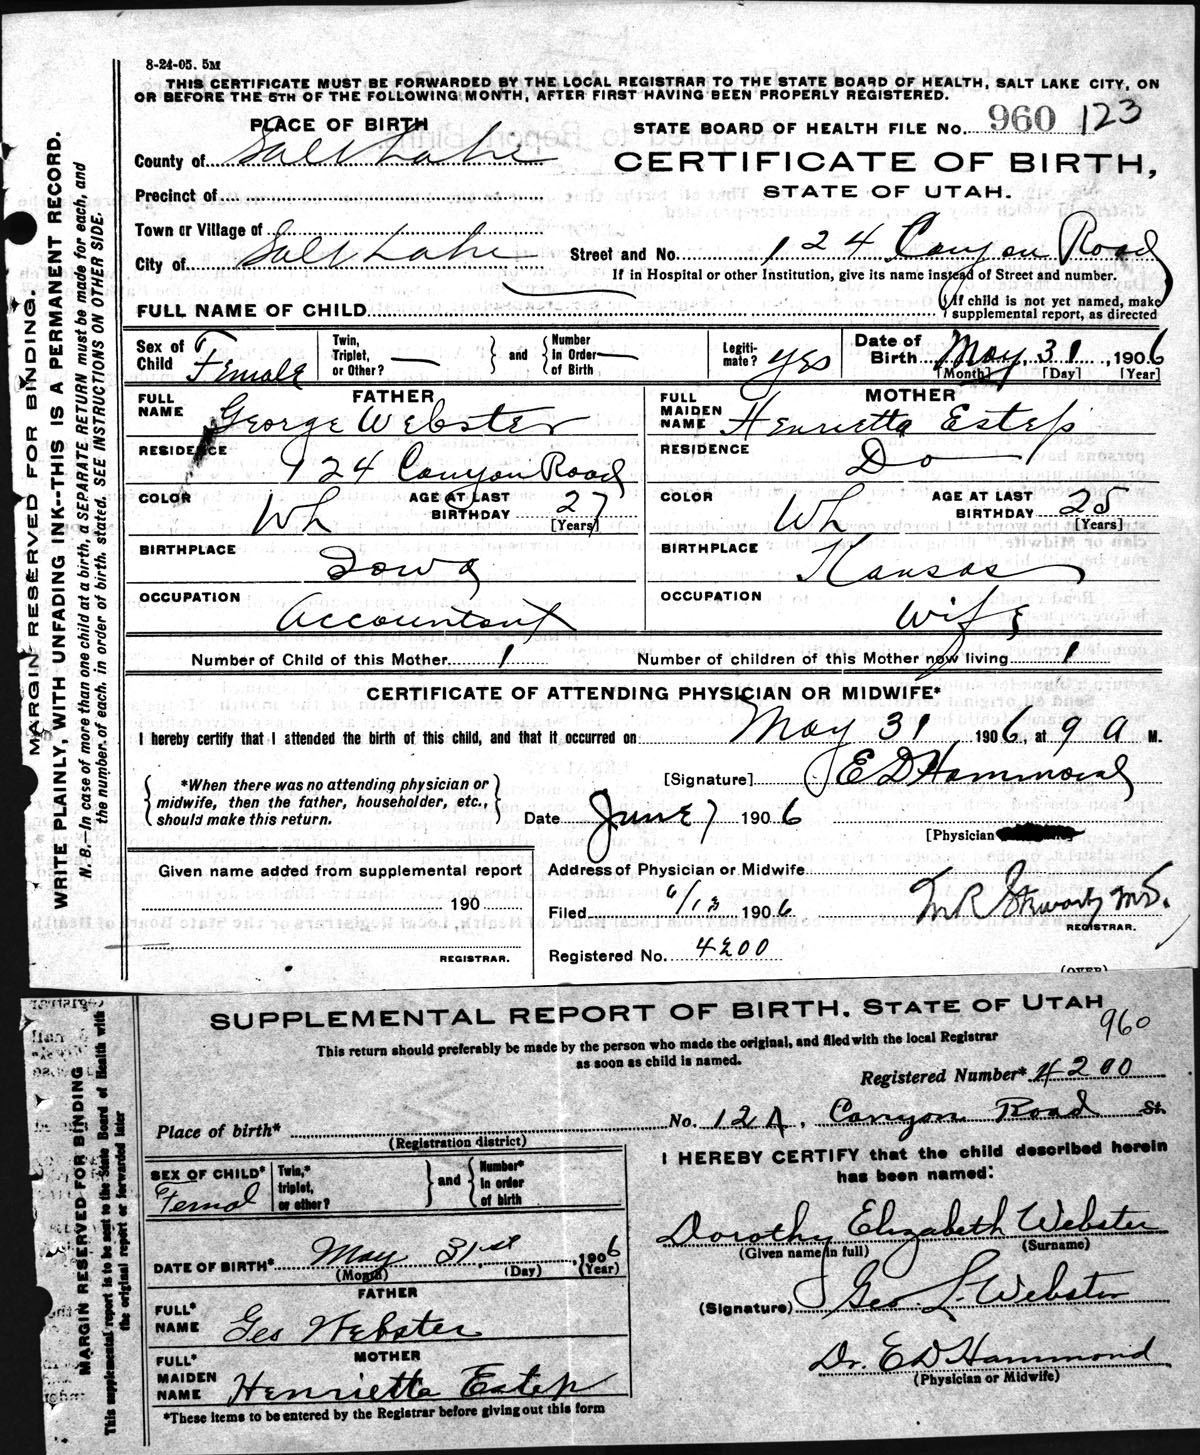 8-24-05. 5M
THIS CERTIFICATE MUST BE FORWARDED BY THE LOCAL REGISTRAR TO THE STATE BOARD OF HEALTH, SALT LAKE CITY, ON
OR BEFORE THE 5TH OF THE FOLLOWING MONTH, AFTER FIRST HAVING BEEN PROPERLY REGISTERED.
PLACE OF BIRTH
STATE BOARD OF HEALTH FILE No. 960 123
County of Salt Lake
CERTIFICATE OF BIRTH,
STATE OF UTAH.
Precinct of
Town or Village of
City of Salt Lake
Street and No. 124 Canyon Road
If in Hospital or other Institution, give its name instead of Street and number.
FULL NAME OF CHILD
{If child is not yet named, make
supplemental report, as directed
Sex of Child Female
Twin, Triplet, or Other? —
} and { Number In Order of Birth —
Legiti-mate? yes
Date of Birth May 31, 1906
[Month] [Day] [Year]
FATHER
FULL NAME George Webster
RESIDENCE 124 Canyon Road
COLOR Wh AGE AT LAST BIRTHDAY 27
[Years]
BIRTHPLACE Iowa
OCCUPATION Accountant
MOTHER
FULL MAIDEN NAME Henrietta Estep
RESIDENCE Do
COLOR Wh AGE AT LAST BIRTHDAY 25
[Years]
BIRTHPLACE Kansas
OCCUPATION Wife
Number of Child of this Mother 1 Number of children of this Mother now living 1
CERTIFICATE OF ATTENDING PHYSICIAN OR MIDWIFE*
I hereby certify that I attended the birth of this child, and that it occurred on May 31 1906, at 9 a M.
{ *When there was no attending physician or
midwife, then the father, householder, etc.,
should make this return. }
[Signature] E D Hammond
Date June 7 1906
[Physician
Given name added from supplemental report
190
REGISTRAR.
Address of Physician or Midwife
Filed 6/13 1906
M.D.
REGISTRAR.
Registered No. 4200
(OVER)
MARGIN RESERVED FOR BINDING.
WRITE PLAINLY, WITH UNFADING INK--THIS IS A PERMANENT RECORD.
N. B.—In case of more than one child at a birth, a SEPARATE RETURN must be made for each, and
the number of each, in order of birth, stated. SEE INSTRUCTIONS ON OTHER SIDE.
SUPPLEMENTAL REPORT OF BIRTH. STATE OF UTAH
960
This return should preferably be made by the person who made the original, and filed with the local Registrar
as soon as child is named.
Registered Number* 4200
Place of birth* No. 124, Canyon Road St.
(Registration district)
SEX OF CHILD* Femal
Twin,* triplet, or other?
} and { Number* In order of birth
DATE OF BIRTH* May 31st, 1906
(Month) (Day) (Year)
FATHER
FULL* NAME Geo Webster
MOTHER
FULL* MAIDEN NAME Henrietta Estep
*These items to be entered by the Registrar before giving out this form
I HEREBY CERTIFY that the child described herein
has been named:
Dorothy Elizabeth Webster
(Given name in full) (Surname)
(Signature) Geo. L. Webster
Dr. E D Hammond
(Physician or Midwife)
MARGIN RESERVED FOR BINDING
This supplemental report is to be sent to the State Board of Health with
the original report or forwarded later